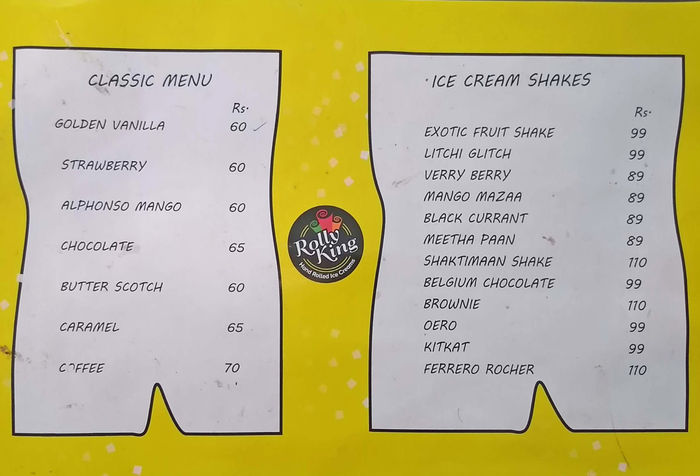 CLASSIC MENU
Rs.
GOLDEN VANILLA 60
STRAWBERRY 60
ALPHONSO MANGO 60
CHOCOLATE 65
BUTTER SCOTCH 60
CARAMEL 65
COFFEE 70
Rolly
King
Hand Rolled Ice Creams
ICE CREAM SHAKES
Rs.
EXOTIC FRUIT SHAKE 99
LITCHI GLITCH 99
VERRY BERRY 89
MANGO MAZAA 89
BLACK CURRANT 89
MEETHA PAAN 89
SHAKTIMAAN SHAKE 110
BELGIUM CHOCOLATE 99
BROWNIE 110
OERO 99
KITKAT 99
FERRERO ROCHER 110